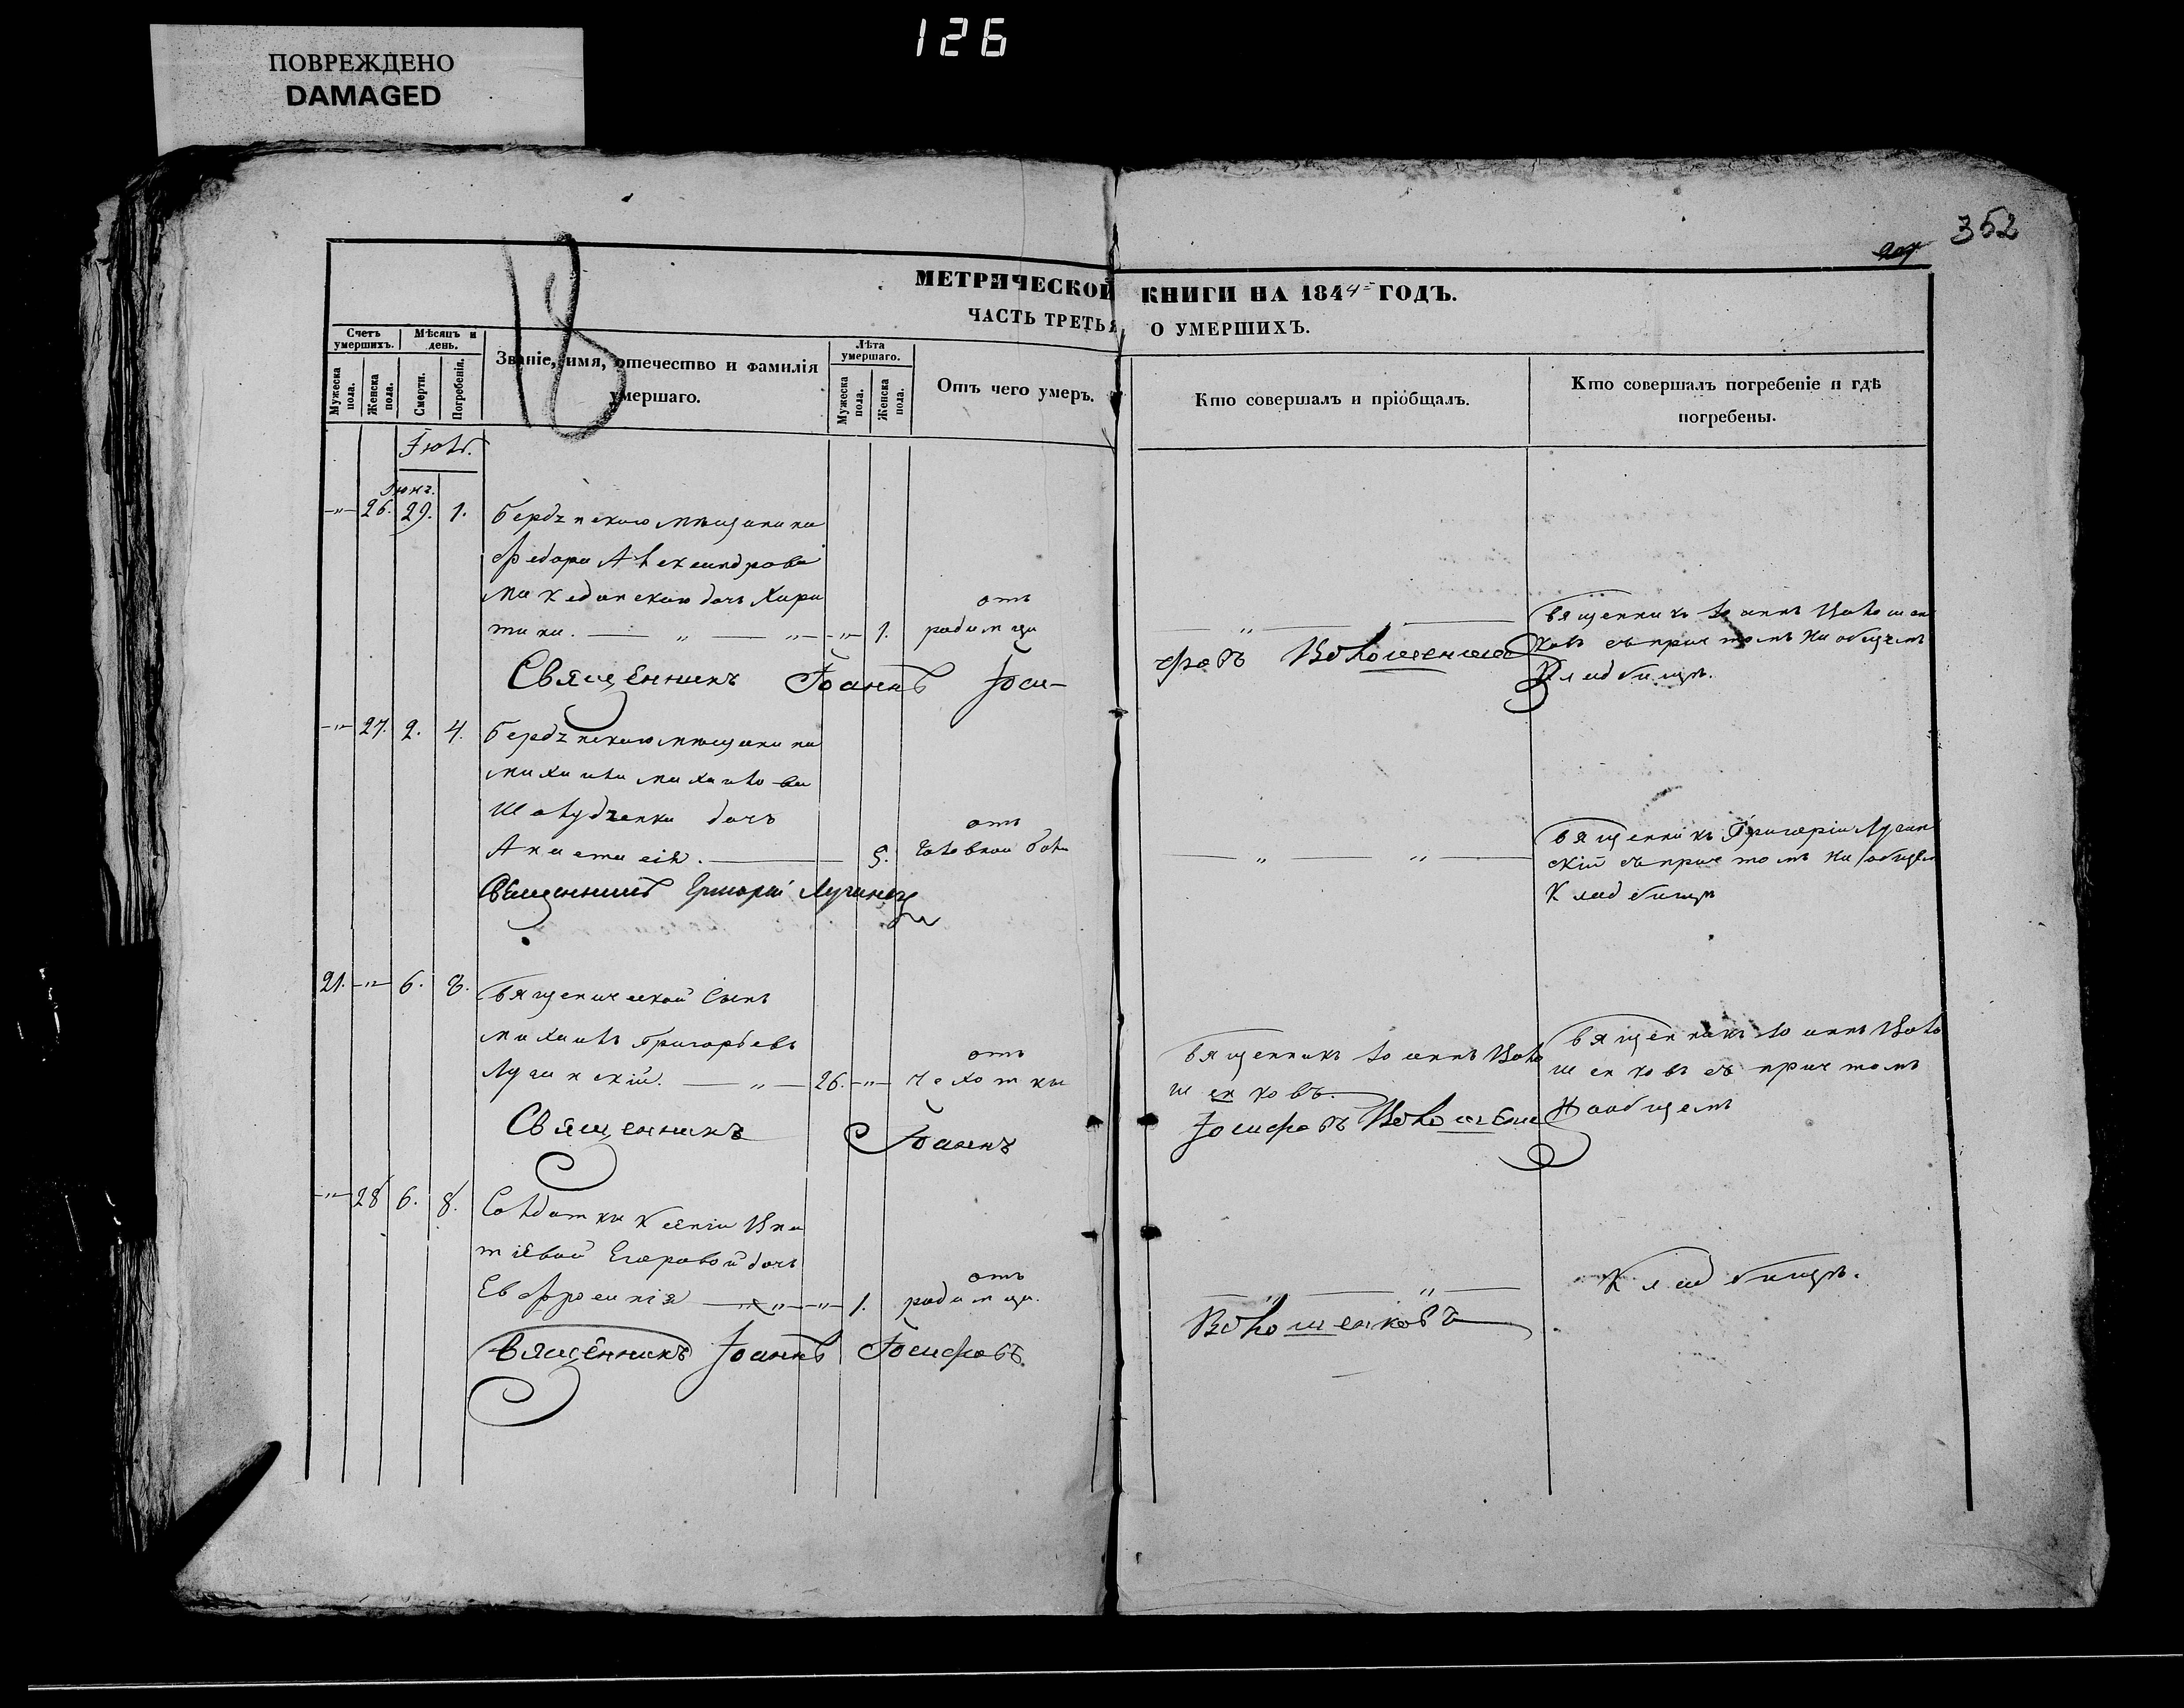 126
ПОВРЕЖДЕНО
DAMAGED
352
18
МЕТРИЧЕСКОЙ КНИГИ НА 1844 ГОДЪ.
ЧАСТЬ ТРЕТЬЯ, О УМЕРШИХЪ.
Счетъ умершихъ.
Мужеска пола.
Женска пола.
Мѣсяцъ и день.
Смерти.
Погребенія.
Званіе, имя, отечество и фамилія
умершаго.
Лѣта умершаго.
Мужеска пола.
Женска пола.
Отъ чего умеръ.
Кто совершалъ и пріобщалъ.
Кто совершалъ погребеніе и гдѣ
погребены.
Іюль.
Іюня.
26. 29. 1. мѣщанина
Федора Александрова
Македонскаго дочь Хари
тина. 1. отъ родимца
Священникъ Іоаннъ Іоси-
фовъ
Священникъ Іоаннъ
ковъ съ причтомъ на общемъ
кладбищѣ.
27. 2. 4. мѣщанина
Михаила Михайлова
дочь
Анастасія. 5. отъ головной боли
Священникъ Григорій
Священникъ Григорій Лучин
скій съ причтомъ на общем
кладбищѣ
21. 6. 8. Священической сынъ
Михаилъ Григорьевъ
Лучинскій. 26. отъ чахотки
Священникъ Іоаннъ Воло
шенковъ.
Священникъ Іоаннъ Воло
шенковъ съ причтомъ
На общемъ
Священникъ Іоаннъ
Іосифовъ
28 6. 8. Солдатки Ксеніи Игна
тіевой Егоровой дочь
Евфросинія 1. отъ родимца.
Кладбищѣ.
Священникъ Іоаннъ Іосифовъ
Волошенковъ